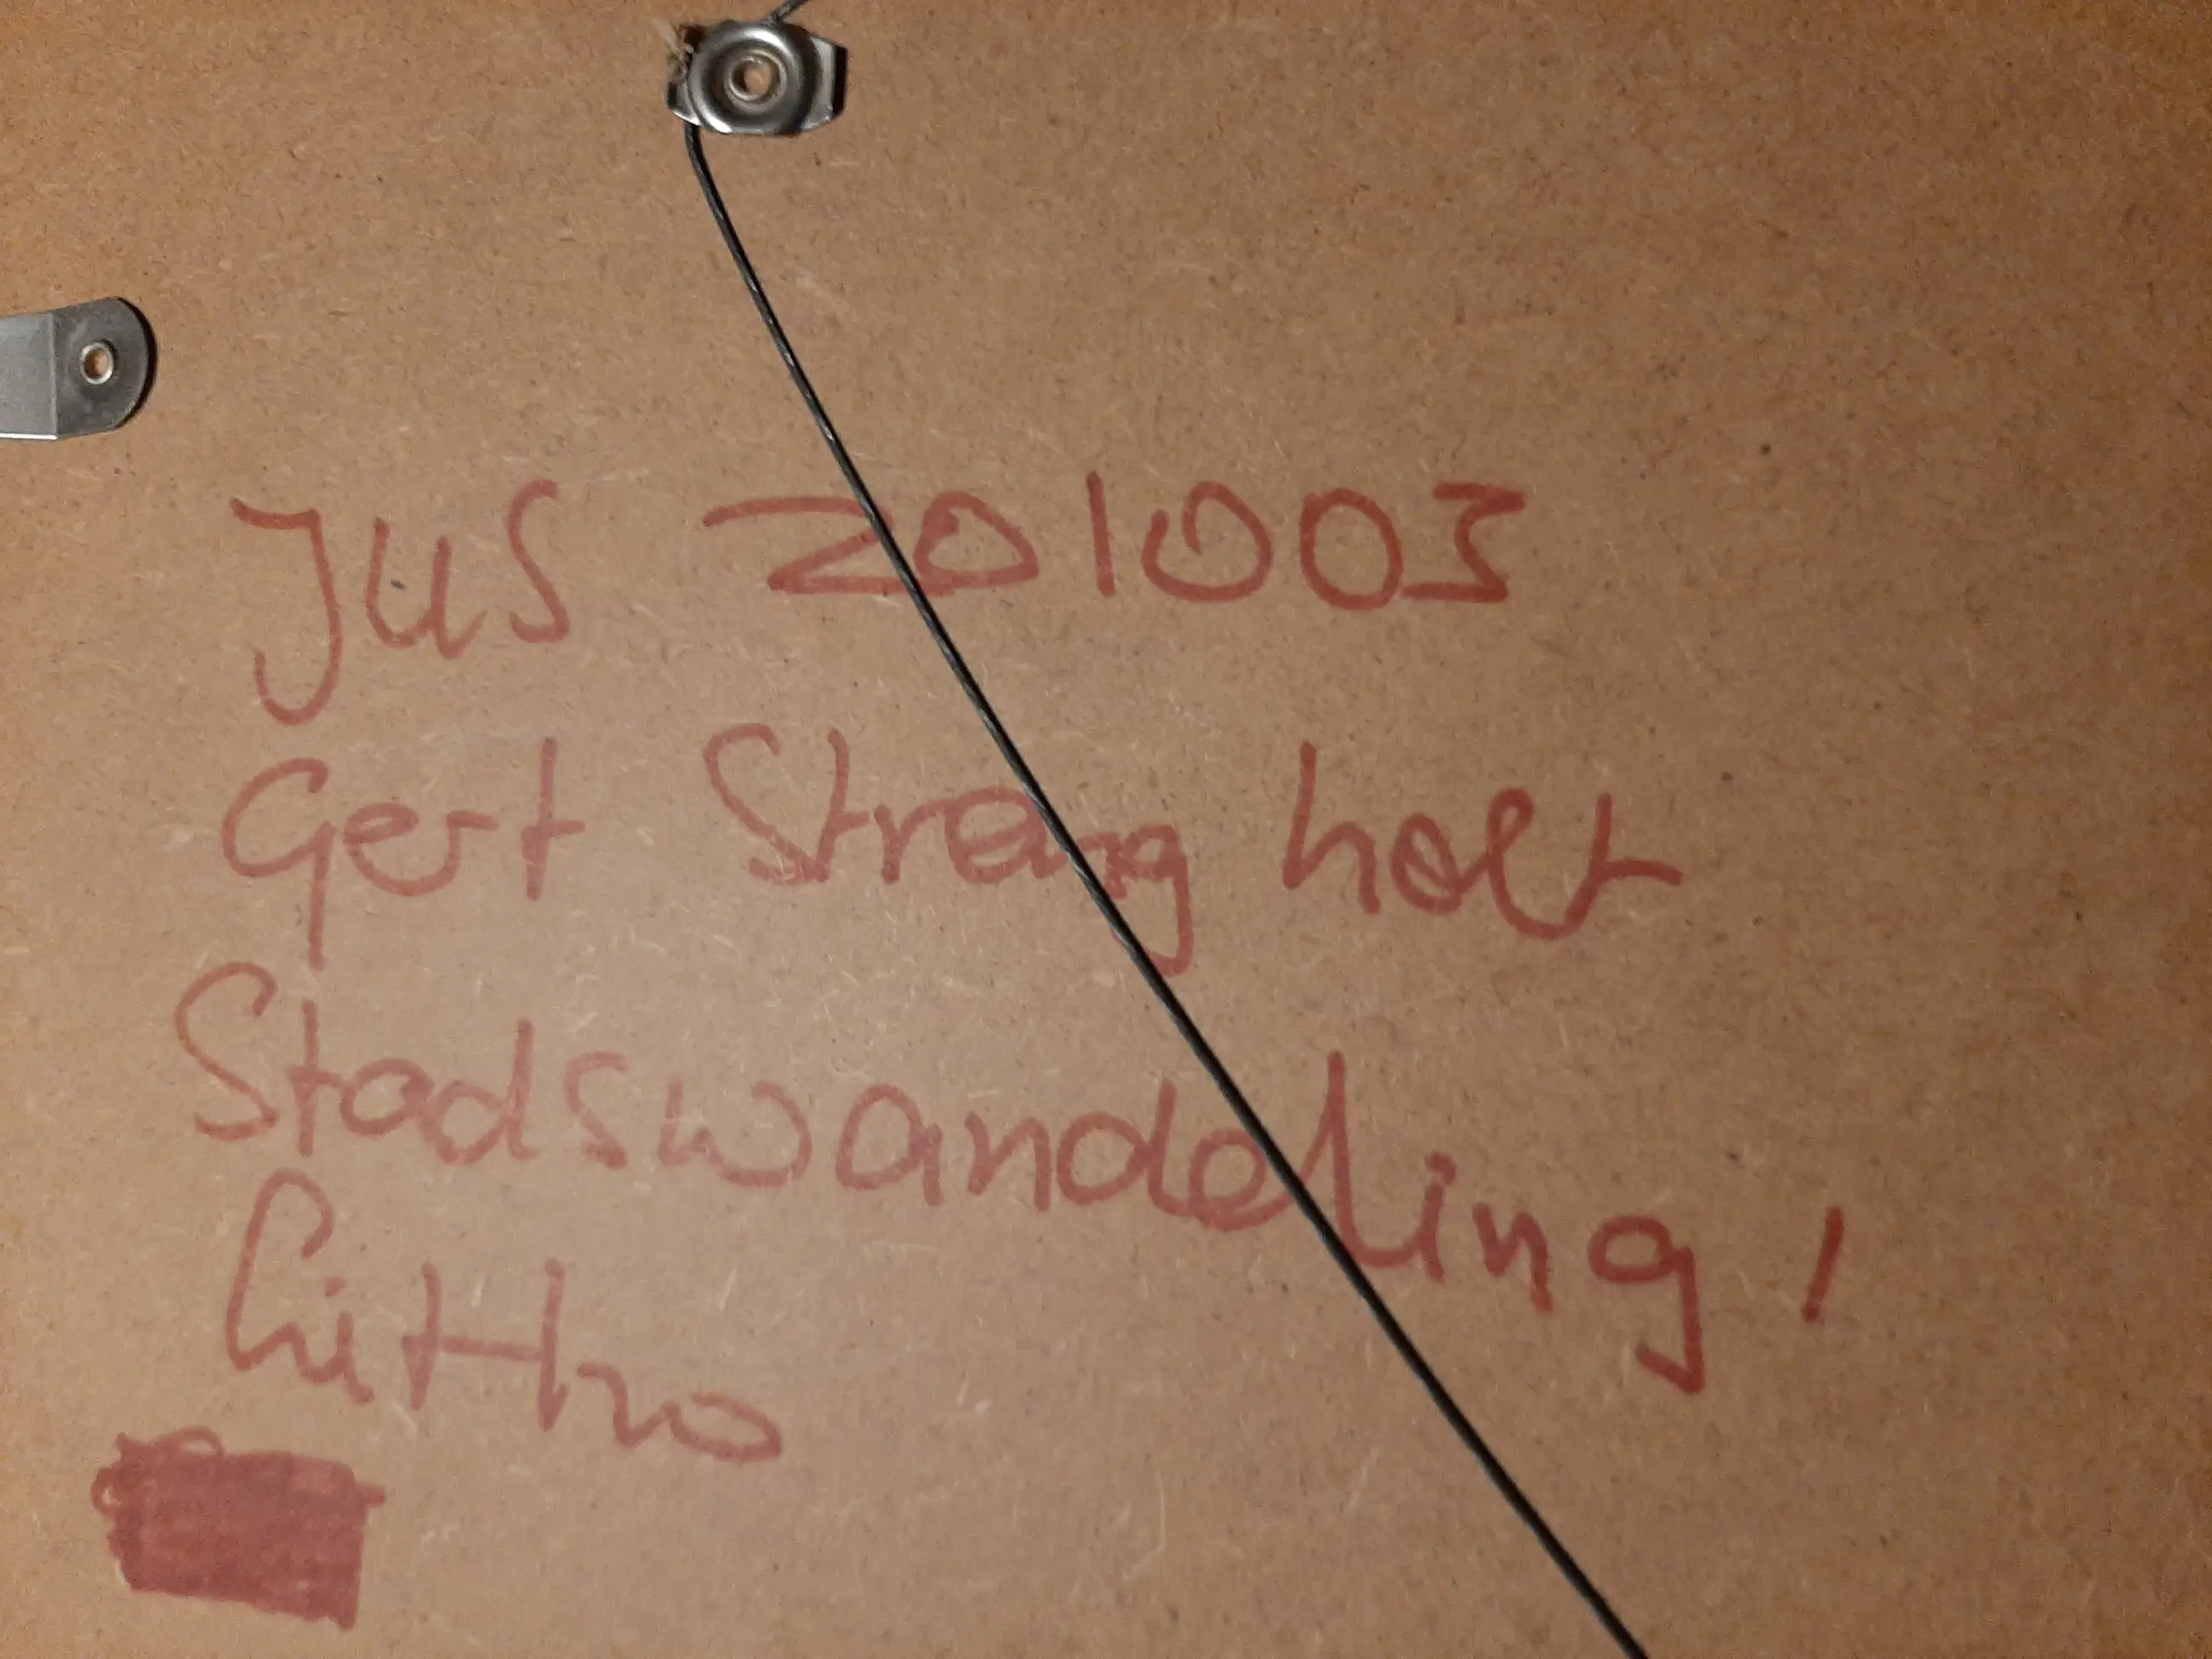 JUS 201003
Gert Strengholt
Stadswandeling,
Litho